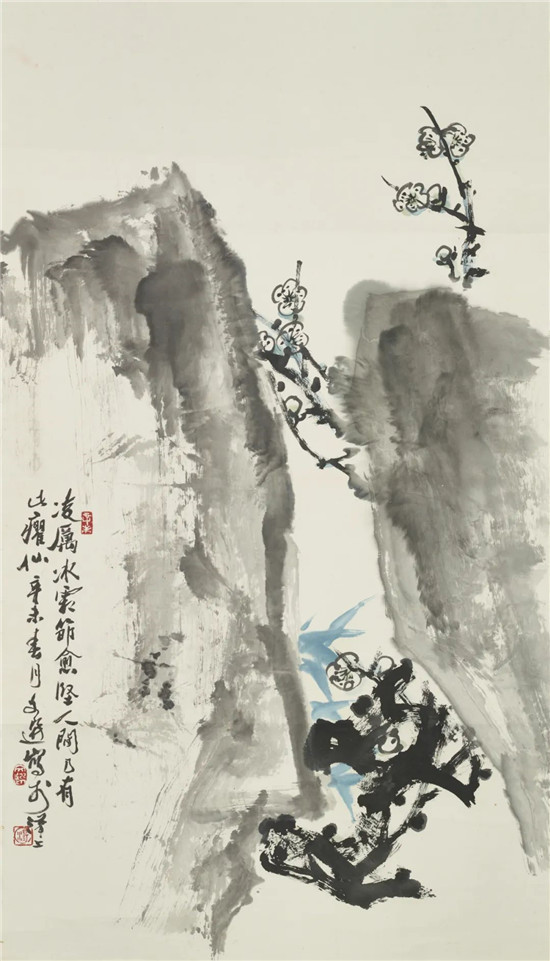 凌厲冰霜節愈堅人間乃有
此癯仙辛未春月文選寫於漢上